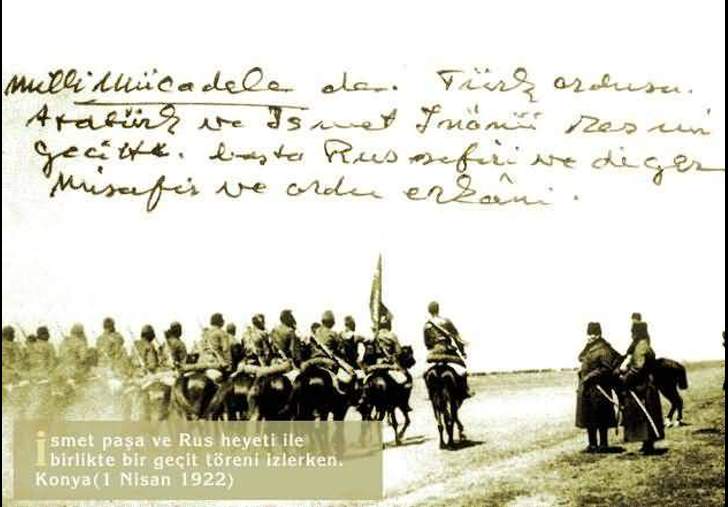 Milli Mücadele de. Türk ordusu.
Atatürk ve İsmet İnönü Resmi
geçitte. başta Rus sefiri ve diğer
Misafir ve ordu erkâni.
İsmet paşa ve Rus heyeti ile
birlikte bir geçit töreni izlerken.
Konya(1 Nisan 1922)